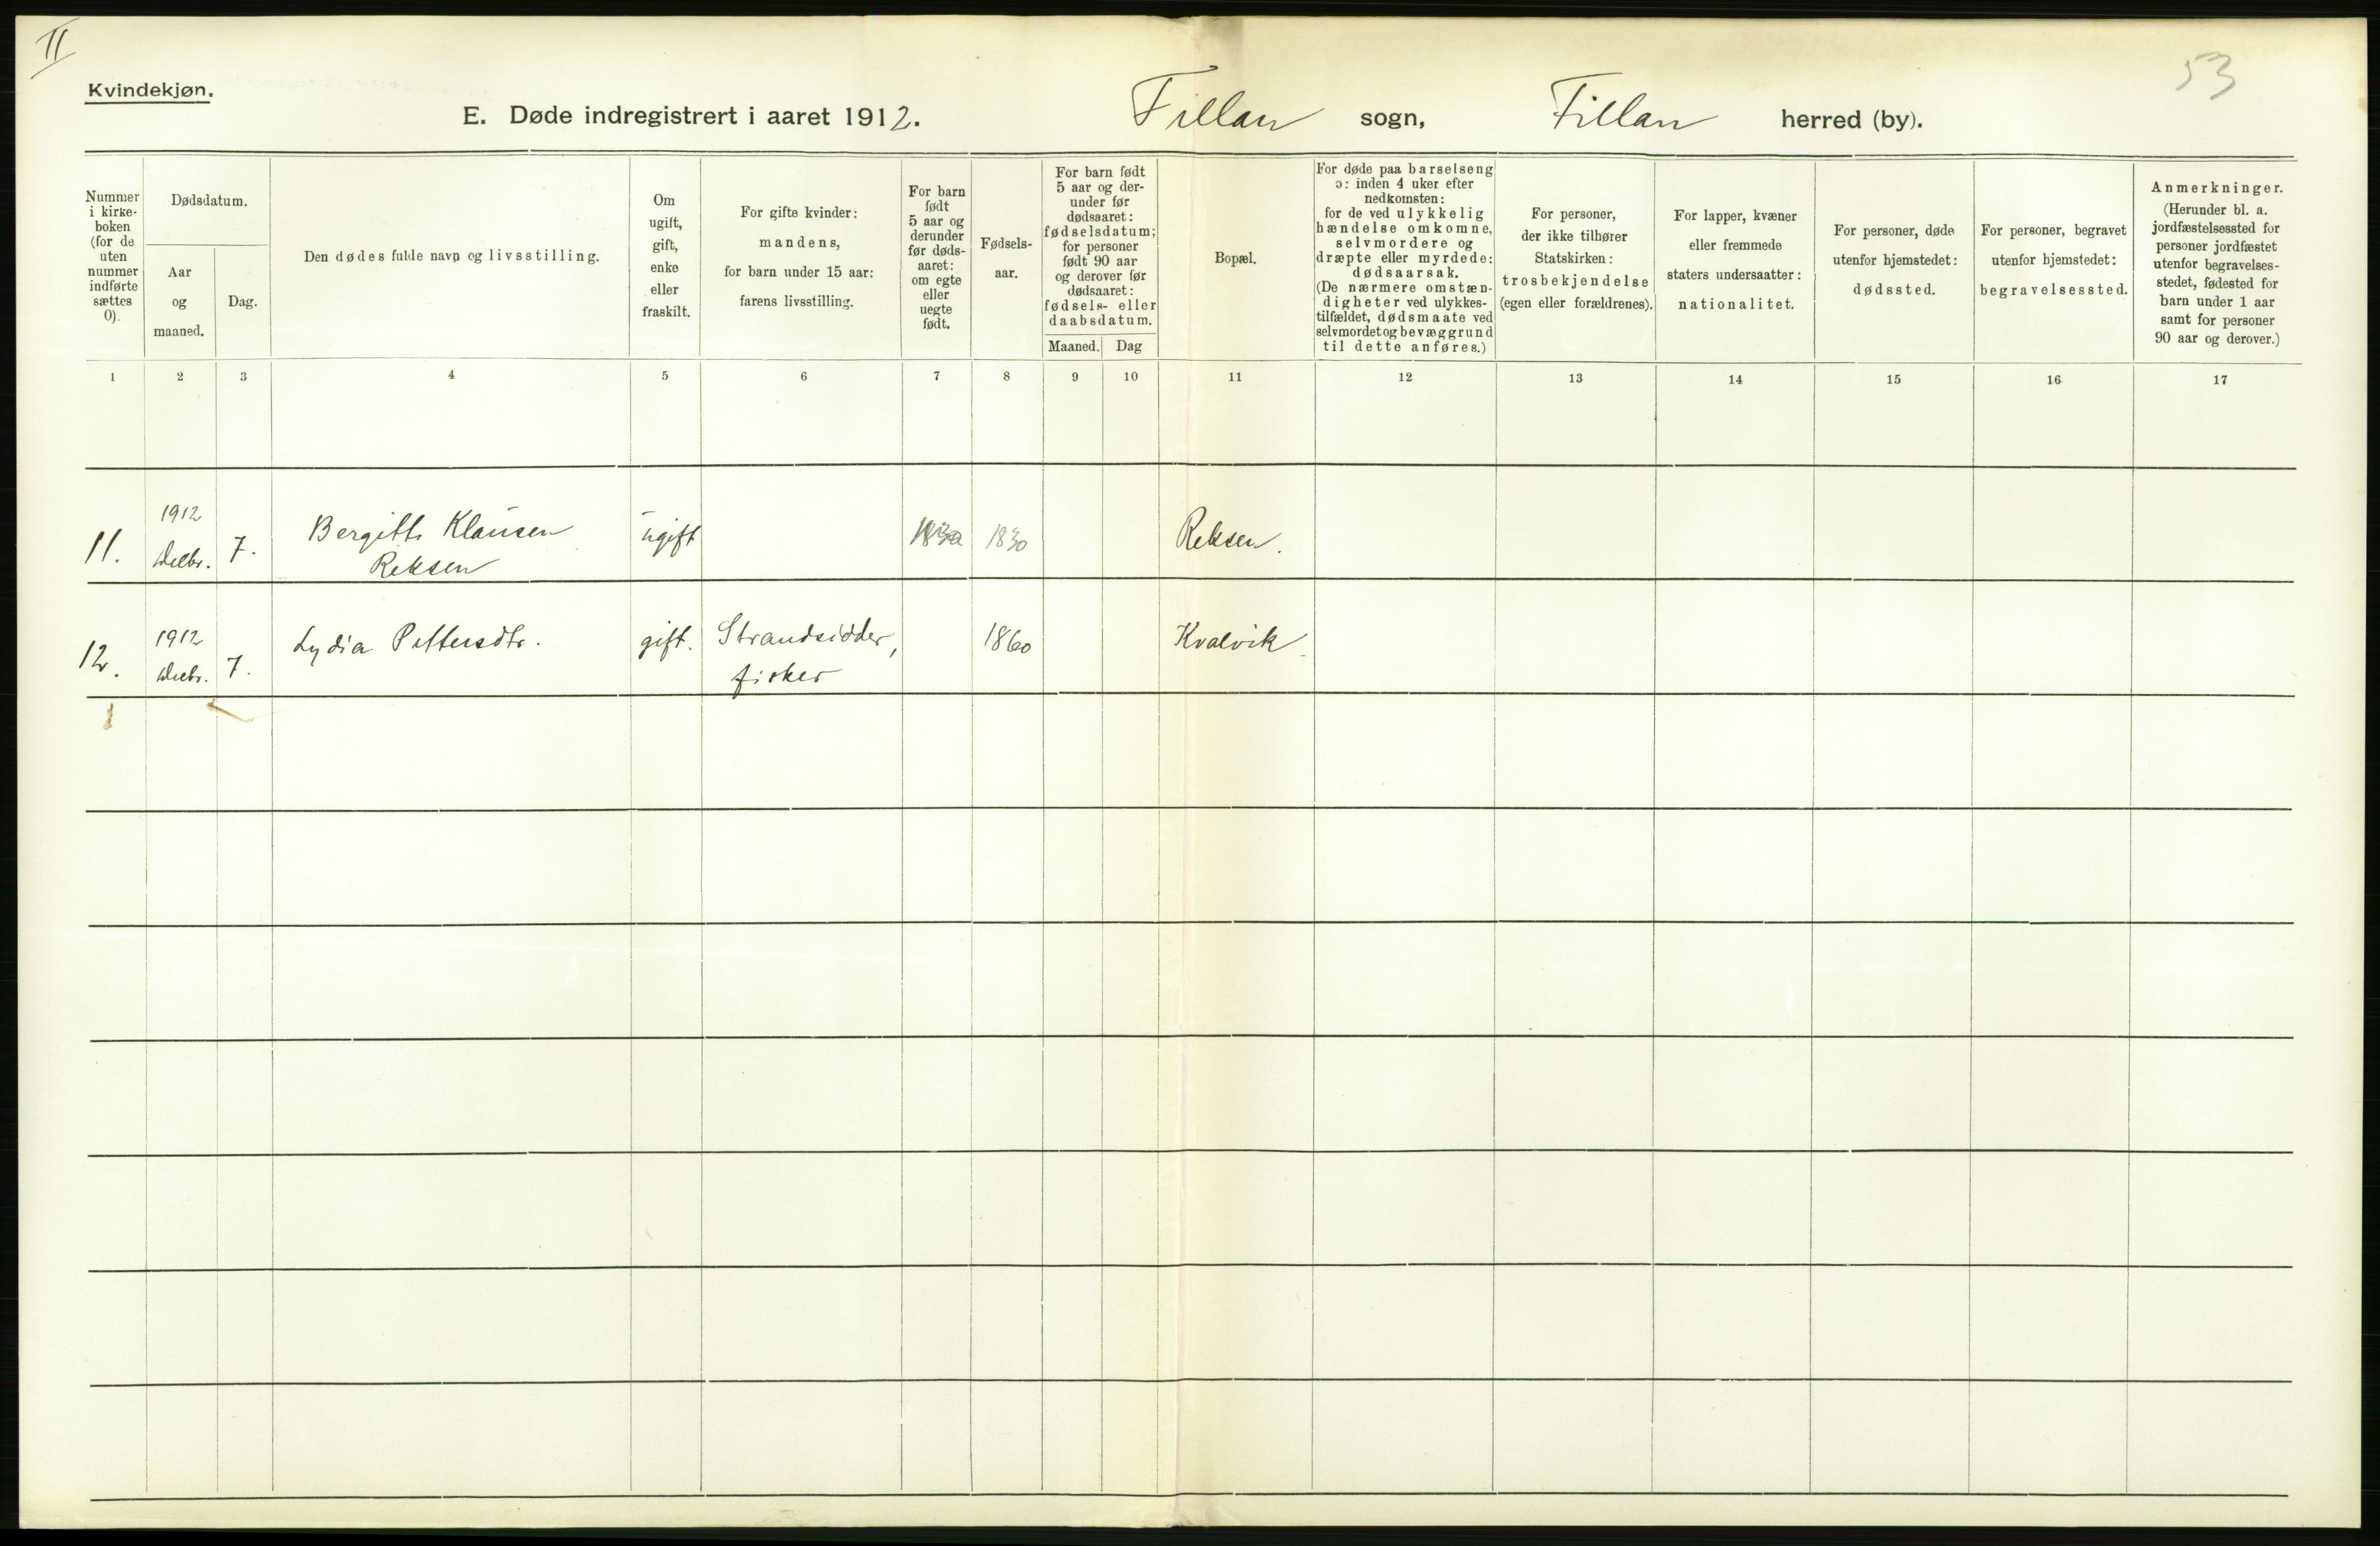 II
53
Kvindekjøn.
E. Døde indregistrert i aaret 1912. Fillan sogn, Fillan herred (by).
Nummer
i kirke-
boken
(for de
uten
nummer
indførte
sættes
0).
Dødsdatum.
Aar
og
maaned.
Dag.
Den dødes fulde navn og livsstilling.
Om
ugift,
gift,
enke
eller
fraskilt.
For gifte kvinder:
mandens,
for barn under 15 aar:
farens livsstilling.
For barn
født
5 aar og
derunder
før døds-
aaret:
om egte
eller
uegte
født.
Fødsels-
aar.
For barn født
5 aar og der-
under før
dødsaaret:
fødselsdatum;
for personer
født 90 aar
og derover før
dødsaaret:
fødsels- eller
daabsdatum.
Maaned. Dag
Bopæl.
For døde paa barselseng
ɔ: inden 4 uker efter
nedkomsten:
for de ved ulykkelig
hændelse omkomne,
selvmordere og
dræpte eller myrdede:
dødsaarsak.
(De nærmere omstæn-
digheter ved ulykkes-
tilfældet, dødsmaate ved
selvmordet og bevæggrund
til dette anføres.)
For personer,
der ikke tilhører
Statskirken:
trosbekjendelse
(egen eller forældrenes).
For lapper, kvæner
eller fremmede
staters undersaatter:
nationalitet.
For personer, døde
utenfor hjemstedet:
dødssted.
For personer, begravet
utenfor hjemstedet:
begravelsessted.
Anmerkninger.
(Herunder bl. a.
jordfæstelsessted for
personer jordfæstet
utenfor begravelses-
stedet, fødested for
barn under 1 aar
samt for personer
90 aar og derover.)
1 2 3 4 5 6 7 8 9 10 11 12 13 14 15 16 17
1912
11. Decbr. 7. Bergitte Klausen ugift 1830 1830 Reksen.
Reksen
1912
12. Decbr. 7. Lydia Pettersdtr. gift. Strandsidder, 1860 Kvalvik
fisker